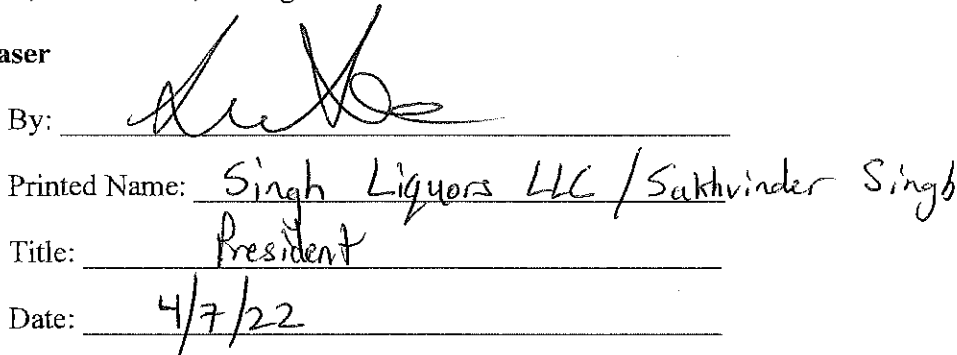 aser
By:
Printed Name: Singh Liquors LLC / Sukhvinder Singh
Title: President
Date: 4/7/22